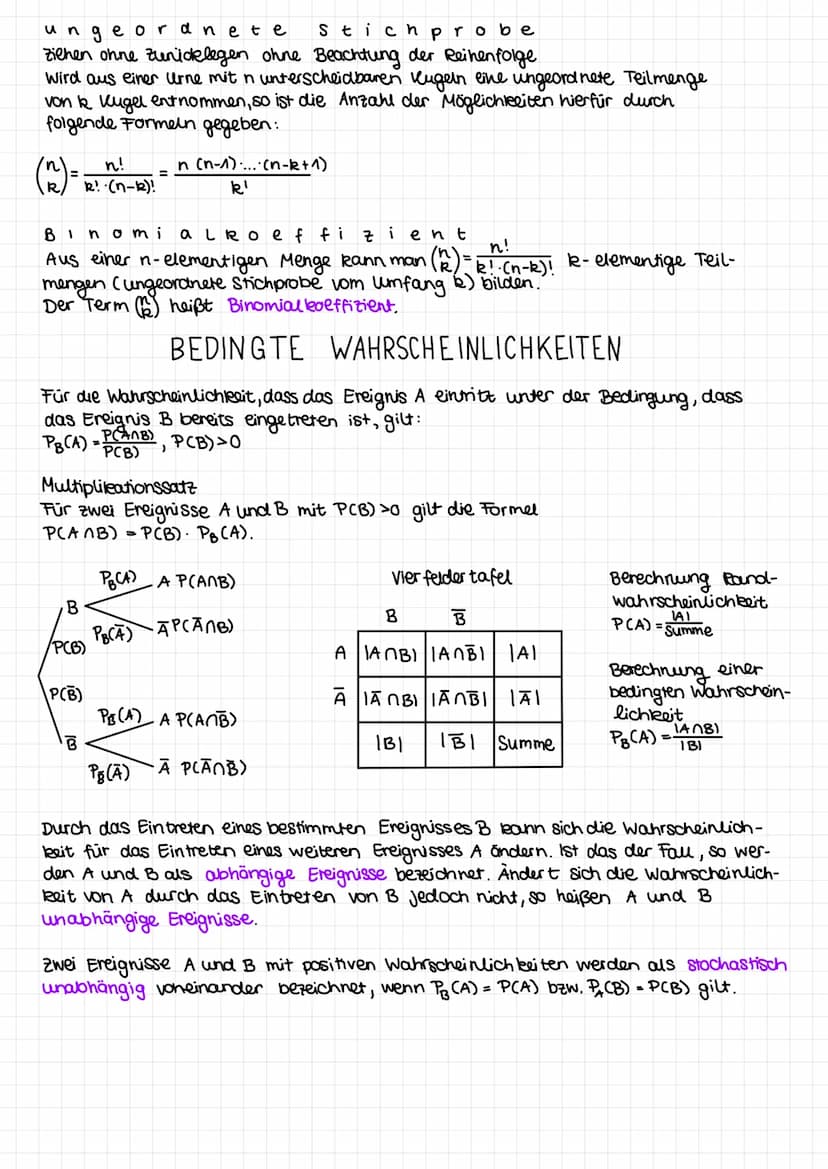 ungeordnete Stichprobe
Ziehen ohne Zurücklegen ohne Beachtung der Reihenfolge
Wird aus einer Urne mit n unterscheidbaren Kugeln eine ungeordnete Teilmenge
von k Kugel entnommen, so ist die Anzahl der Möglichkeiten hierfür durch
folgende Formeln gegeben:
(n k) = n! / (k!·(n-k)!) = n (n-1)·...·(n-k+1) / k!
Binomialkoeffizient
Aus einer n-elementigen Menge kann man (n k) = n! / (k!·(n-k)!) k-elementige Teil-
mengen (ungeordnete Stichprobe vom Umfang k) bilden.
Der Term (n k) heißt Binomialkoeffizient.
BEDINGTE WAHRSCHEINLICHKEITEN
Für die Wahrscheinlichkeit, dass das Ereignis A eintritt unter der Bedingung, dass
das Ereignis B bereits eingetreten ist, gilt:
P_B(A) = P(A∩B) / P(B), P(B)>0
Multiplikationssatz
Für zwei Ereignisse A und B mit P(B)>0 gilt die Formel
P(A∩B) = P(B)·P_B(A).
P_B(A) A P(A∩B)
B
P(B) P_B(A̅) A̅ P(A̅∩B)
P(B̅)
P_B̅(A) A P(A∩B̅)
B̅
P_B̅(A̅) A̅ P(A̅∩B̅)
Vierfeldertafel
B B̅
A |A∩B| |A∩B̅| |A|
A̅ |A̅∩B| |A̅∩B̅| |A̅|
|B| |B̅| Summe
Berechnung Rand-
wahrscheinlichkeit
P(A) = |A| / Summe
Berechnung einer
bedingten Wahrschein-
lichkeit
P_B(A) = |A∩B| / |B|
Durch das Eintreten eines bestimmten Ereignisses B kann sich die Wahrscheinlich-
keit für das Eintreten eines weiteren Ereignisses A ändern. Ist das der Fall, so wer-
den A und B als abhängige Ereignisse bezeichnet. Ändert sich die Wahrscheinlich-
keit von A durch das Eintreten von B jedoch nicht, so heißen A und B
unabhängige Ereignisse.
Zwei Ereignisse A und B mit positiven Wahrscheinlichkeiten werden als stochastisch
unabhängig voneinander bezeichnet, wenn P_B(A) = P(A) bzw. P_A(B) = P(B) gilt.